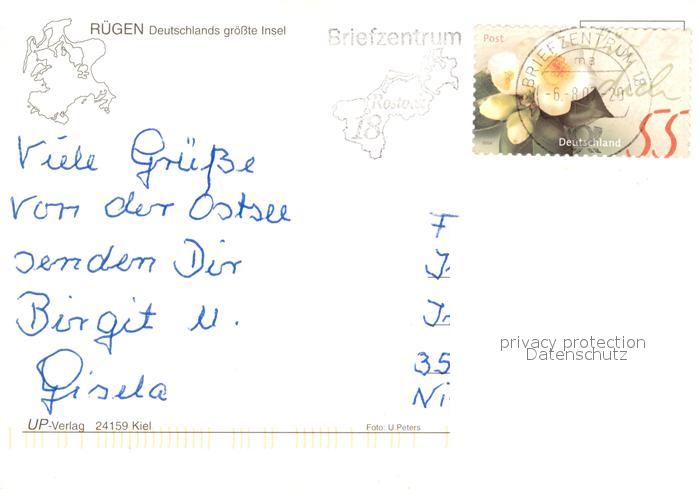 RÜGEN Deutschlands größte Insel
Briefzentrum
Rostock
18
Post
BRIEFZENTRUM 18
ma
-6.-8.0
-20
Deutschland
55
Viele Grüße
von der Ostsee
senden Dir
Birgit u.
Gisela
F
J
Jn
35
Ni
privacy protection
Datenschutz
UP-Verlag 24159 Kiel
Foto: U.Peters